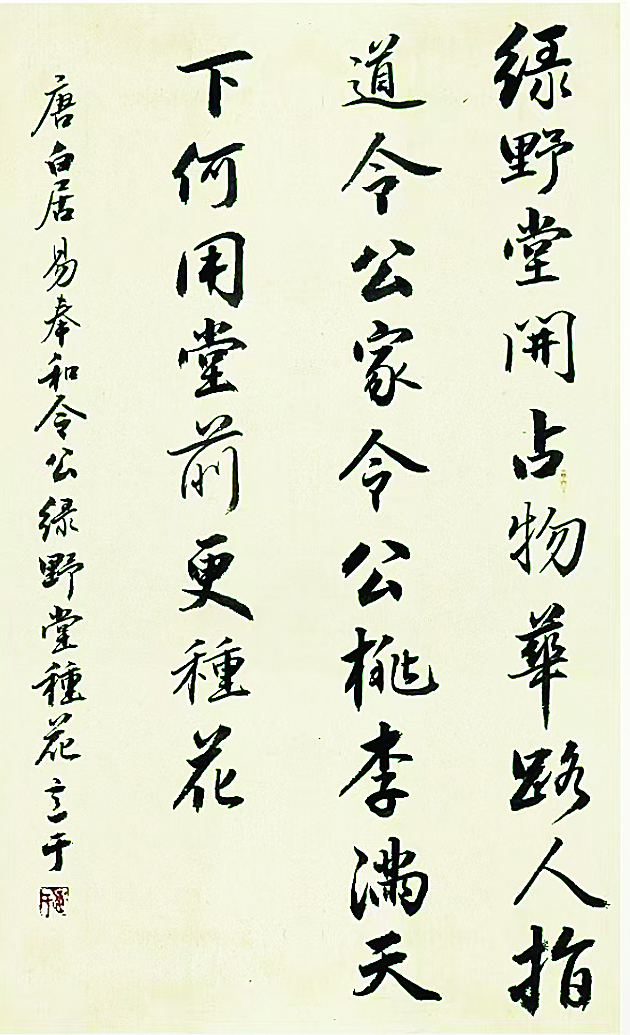 绿野堂開占物華路人指
道令公家令公桃李滿天
下何用堂前更種花
唐白居易奉和令公绿野堂種花